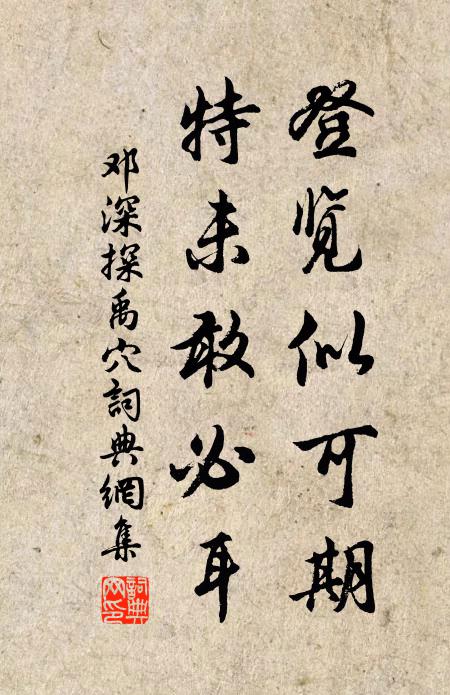 登览似可期
特未敢必耳
邓深探禹穴詞典網集
詞典网印